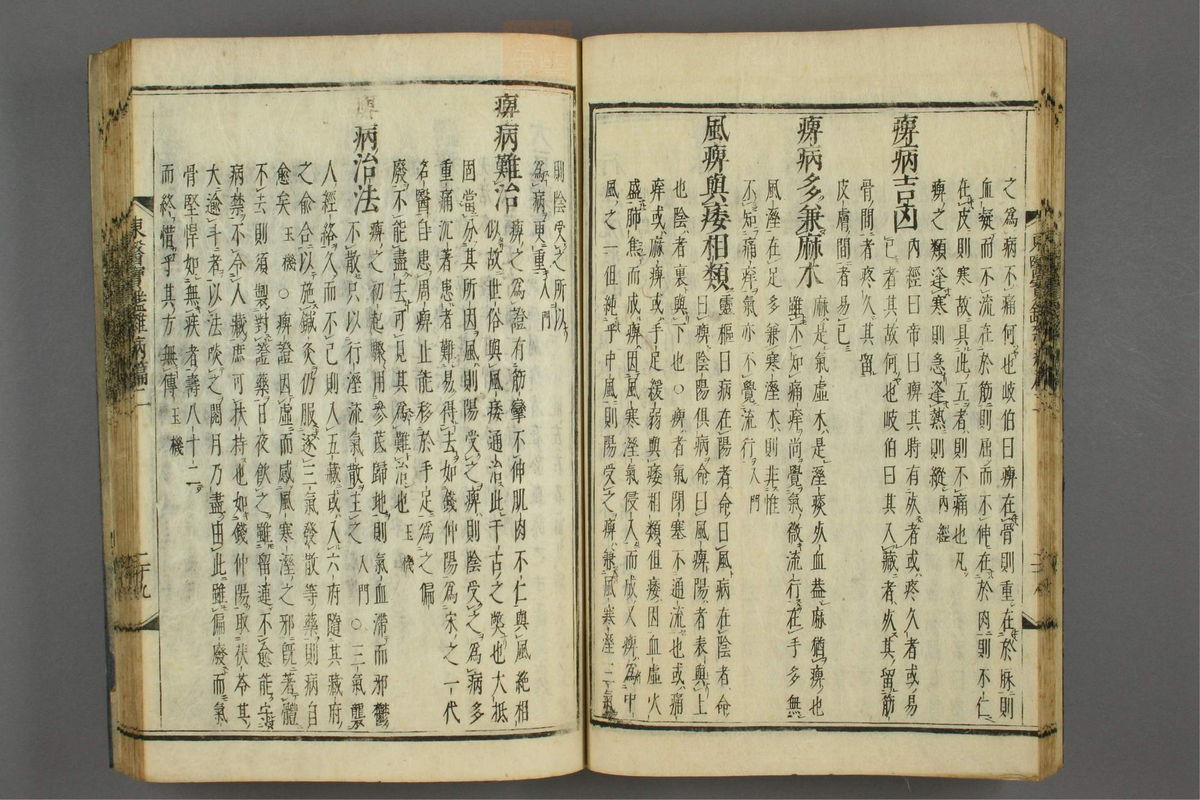 之爲病不痛何也岐伯曰痺在骨則重在於脈則
血凝而不流在於筋則屈而不伸在於肉則不仁
在皮則寒故具此五者則不痛也凡
痺之類逢寒則急逢熱則縱內經
痺病吉凶內經曰帝曰痺其時有死者或疼久者或易
已者其故何也岐伯曰其入藏者死其留筋
骨間者疼久其留
皮膚間者易已
痺病多兼麻木麻是氣虛木是溼痰死血葢麻猶痺也
雖不知痛痒尚覺氣微流行在手多無
風溼在足多兼寒溼木則非惟
不知痛痒氣亦不覺流行入門
風痺與痿相類靈樞曰病在陽者命曰風病在陰者命
曰痺陰陽俱病命曰風痺陽者表與上
也陰者裏與下也○痺者氣閉塞不通流也或痛
痒或麻痺或手足緩弱與痿相類但痿因血虛火
盛肺焦而成痺因風寒溼氣侵入而成又痺爲中
風之一但純乎中風則陽受之痺兼風寒溼三氣
則陰受之所以
爲病更重入門
痺病難治痺之爲證有筋攣不伸肌肉不仁與風絶相
似故世俗與風痿通治此千古之獘也大抵
固當分其所因風則陽受之痺則陰受之爲病多
重痛沉著患者難易得去如錢仲陽爲宋之一代
名醫自患周痺止能移於手足爲之偏
廢不能盡去可見其爲難治也玉機
痺病治法痺之初起驟用參芪歸地則氣血滯而邪鬱
不散只以行溼流氣散主之入門○三氣襲
人經絡久而不已則入五藏或入六府隨其藏府
之俞合以施鍼灸仍服逐三氣發散等藥則病自
愈矣玉機○痺證因虛而感風寒溼之邪旣著體
不去則須製對證藥日夜飮之雖留連不愈能守
病禁不令入藏庶可扶持也如錢仲陽取茯苓其
大逾斗者以法啖之閱月乃盡由此雖偏廢而氣
骨堅悍如無疾者壽八十二
而終惜乎其方無傳玉機
東醫寶鑑雜病篇二
二十九